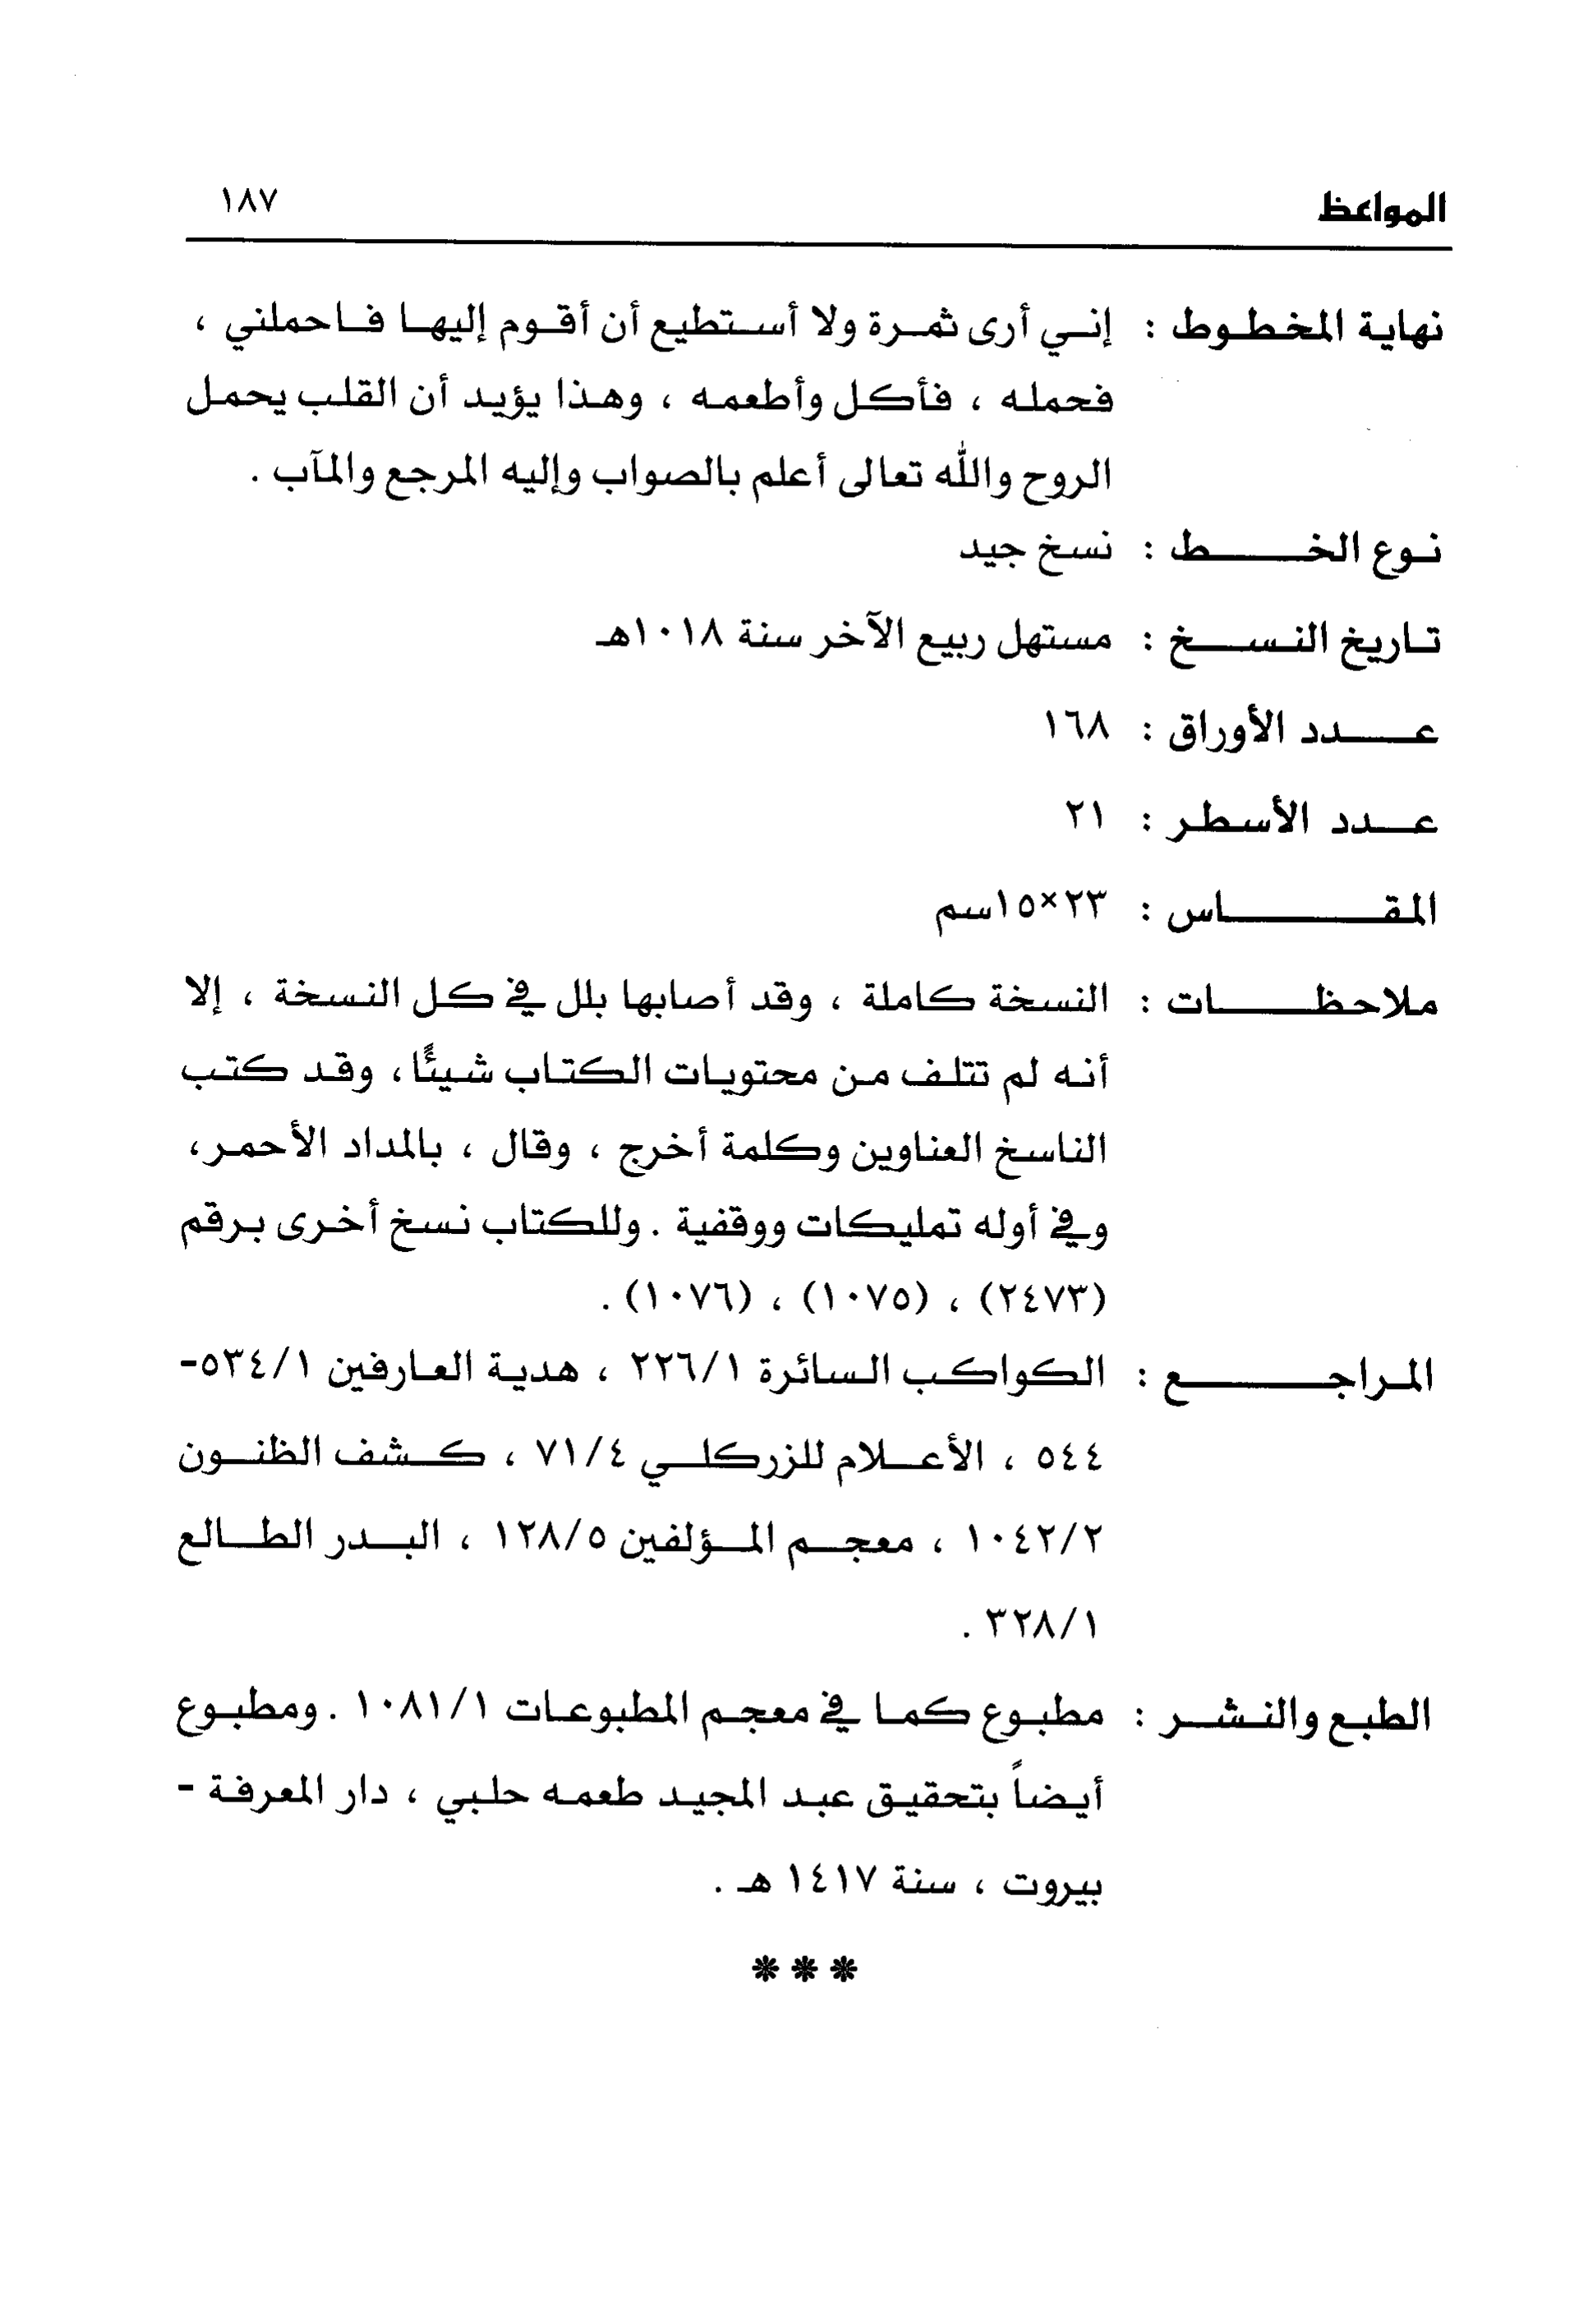 المواعظ ١٨٧
نهاية المخطوط : إني أرى ثمرة ولا أستطيع أن أقوم إليها فاحملني ،
فحمله ، فأكل وأطعمه ، وهذا يؤيد أن القلب يحمل
الروح والله تعالى أعلم بالصواب وإليه المرجع والمآب .
نوع الخط : نسخ جيد
تاريخ النسخ : مستهل ربيع الآخر سنة ١٠١٨هـ
عدد الأوراق : ١٦٨
عدد الأسطر : ٢١
المقاس : ٢٣×١٥سم
ملاحظات : النسخة كاملة ، وقد أصابها بلل في كل النسخة ، إلا
أنه لم تتلف من محتويات الكتاب شيئًا، وقد كتب
الناسخ العناوين وكلمة أخرج ، وقال ، بالمداد الأحمر،
وفي أوله تمليكات ووقفية . وللكتاب نسخ أخرى برقم
(٢٤٧٣) ، (١٠٧٥) ، (١٠٧٦) .
المراجع : الكواكب السائرة ٢٢٦/١ ، هدية العارفين ٥٣٤/١-
٥٤٤ ، الأعلام للزركلي ٧١/٤ ، كشف الظنون
١٠٤٢/٢ ، معجم المؤلفين ١٢٨/٥ ، البدر الطالع
٣٢٨/١ .
الطبع والنشر : مطبوع كما في معجم المطبوعات ١٠٨١/١ . ومطبوع
أيضاً بتحقيق عبد المجيد طعمه حلبي ، دار المعرفة -
بيروت ، سنة ١٤١٧ هـ .
***